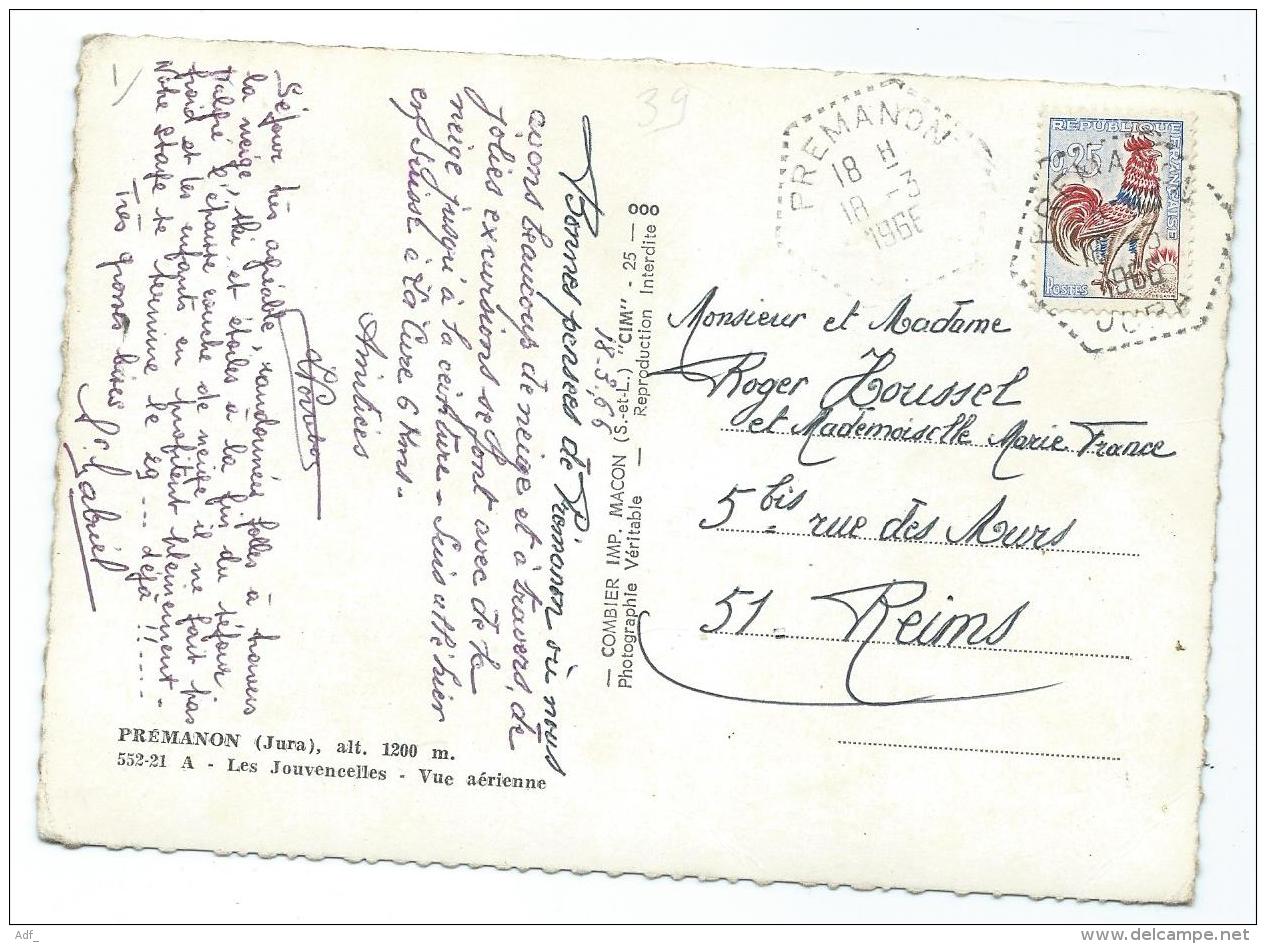 39
PREMANON
18 H
18 - 3
1966
REPUBLIQUE FRANÇAISE
0,25
POSTES
PREMANON
1966
JURA
Bonnes pensées de Prémanon où nous
avons beaucoup de neige et à travers, de
jolies excursions se font avec de la
neige jusqu'à la ceinture - Suis allé hier
en Suisse à La Cure 6 Kms -
Amitiés
Séjour très agréable, randonnées folles à travers
la neige, ski et étoiles à la fin du séjour.
Malgré l'épaisse couche de neige il ne fait pas
froid et les enfants en profitent pleinement -
Notre stage se termine le 29 --- déjà !! ---
Très grosses bises
18.3.66
— COMBIER IMP. MACON (S.-et-L.) "CIM" - 25 — ooo
Photographie Véritable — Reproduction Interdite
Monsieur et Madame
Roger Houssel
et Mademoiselle Marie France
5 bis rue des Murs
51 - Reims
PRÉMANON (Jura), alt. 1200 m.
552-21 A - Les Jouvencelles - Vue aérienne
Adf_
delcampe.net